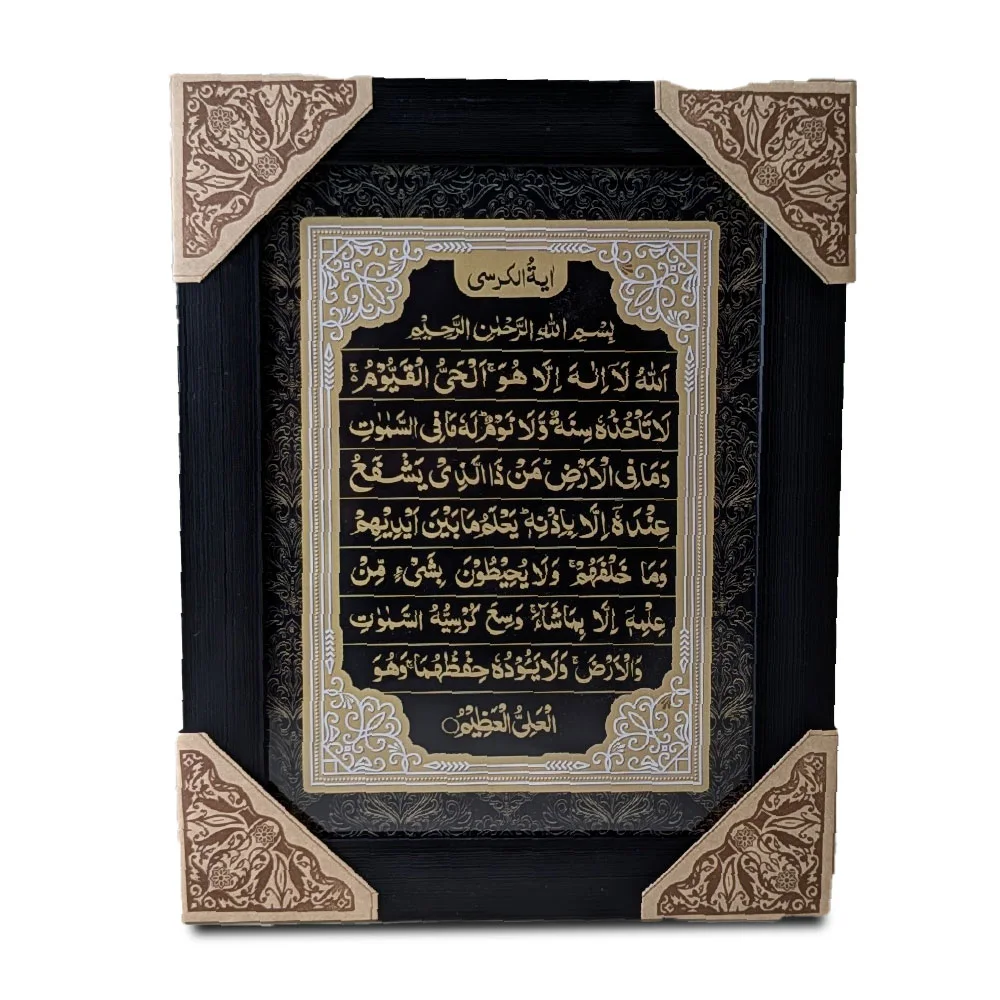 اية الكرسى
بِسْمِ اللهِ الرَّحْمٰنِ الرَّحِيْمِ
اَللهُ لَآ اِلٰهَ اِلَّا هُوَ ۚ اَلْحَىُّ الْقَيُّوْمُ ۚ
لَا تَاْخُذُهٗ سِنَةٌ وَّلَا نَوْمٌ ؕ لَهٗ مَا فِى السَّمٰوٰتِ
وَمَا فِى الْاَرْضِ ؕ مَنْ ذَا الَّذِىْ يَشْفَعُ
عِنْدَهٗٓ اِلَّا بِاِذْنِهٖ ؕ يَعْلَمُ مَا بَيْنَ اَيْدِيْهِمْ
وَمَا خَلْفَهُمْ ۚ وَلَا يُحِيْطُوْنَ بِشَىْءٍ مِّنْ
عِلْمِهٖٓ اِلَّا بِمَا شَآءَ ۚ وَسِعَ كُرْسِيُّهُ السَّمٰوٰتِ
وَالْاَرْضَ ۚ وَلَا يَـُٔوْدُهٗ حِفْظُهُمَا ۚ وَهُوَ
الْعَلِىُّ الْعَظِيْمُ